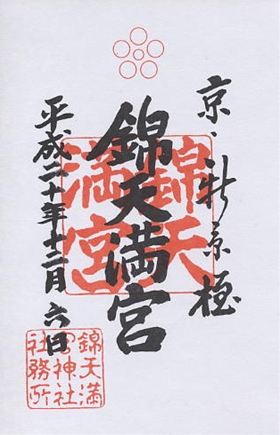 京・新京極
錦天満宮
平成二十年十二月六日
錦天
満宮
錦天満
宮神社
社務所